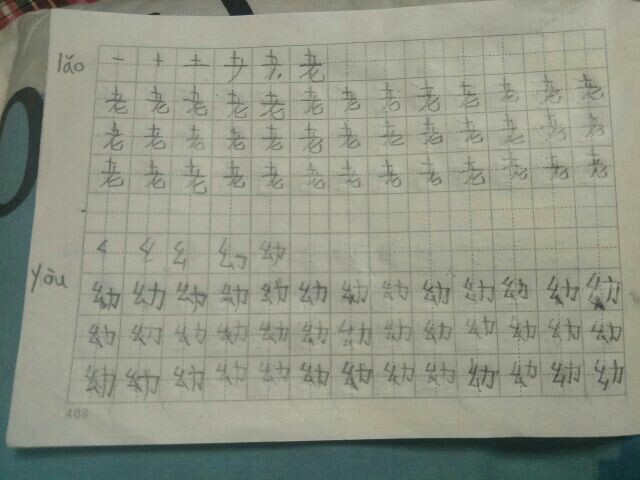 lǎo 一 十 土 耂 耂 老
老 老 老 老 老 老 老 老 老 老 老 老 老
老 老 老 老 老 老 老 老 老 老 老 老 老
老 老 老 老 老 老 老 老 老 老 老 老 老
yòu 幺 幼
幼 幼 幼 幼 幼 幼 幼 幼 幼 幼 幼 幼 幼
幼 幼 幼 幼 幼 幼 幼 幼 幼 幼 幼 幼 幼
幼 幼 幼 幼 幼 幼 幼 幼 幼 幼 幼 幼 幼
408